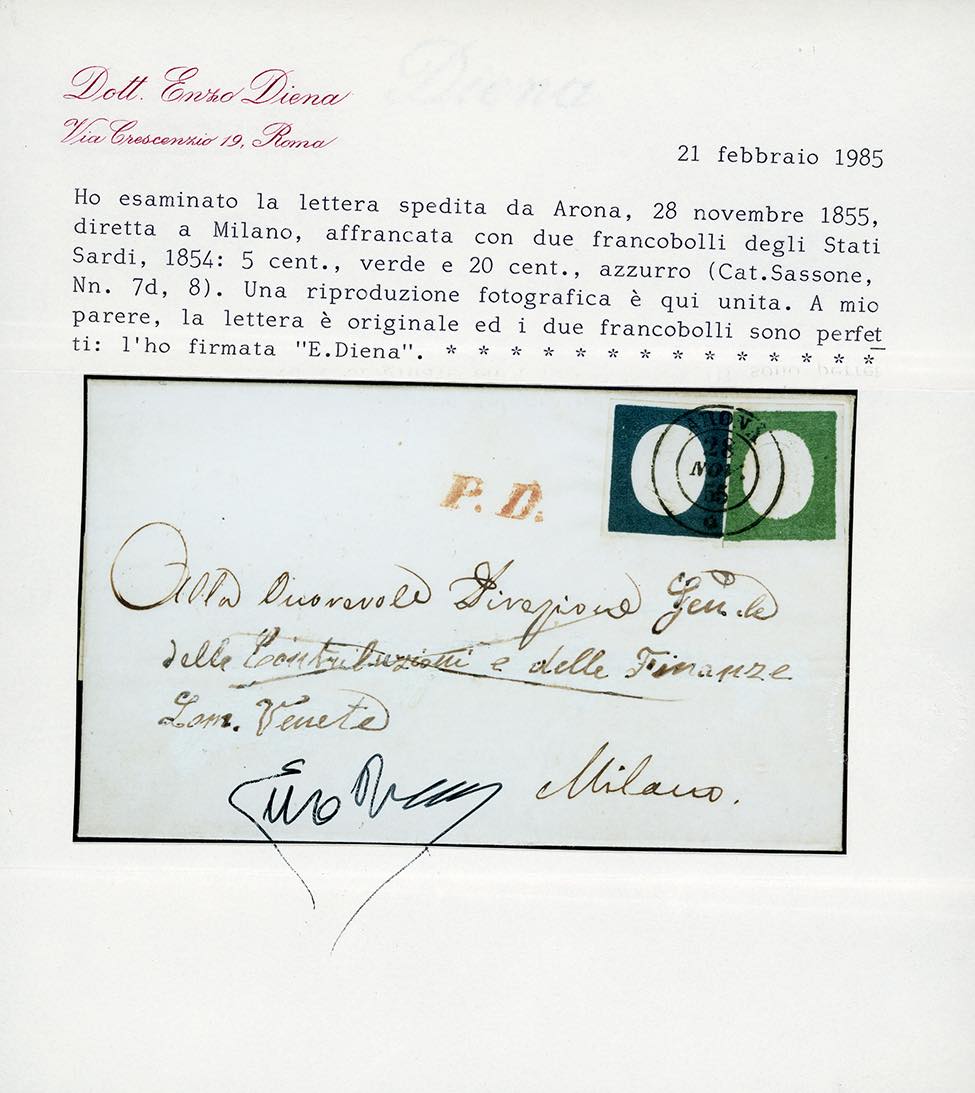 Dott. Enzo Diena
Via Crescenzio 19, Roma
21 febbraio 1985
Ho esaminato la lettera spedita da Arona, 28 novembre 1855,
diretta a Milano, affrancata con due francobolli degli Stati
Sardi, 1854: 5 cent., verde e 20 cent., azzurro (Cat.Sassone,
Nn. 7d, 8). Una riproduzione fotografica è qui unita. A mio
parere, la lettera è originale ed i due francobolli sono perfet
ti: l'ho firmata "E.Diena". * * * * * * * * * * * * * * *
ARONA
28
NOV.
55
P. D.
Alla Onorevole Direzione Gen.le
delle Contribuzioni e delle Finanze
Lom. Venete
Milano.